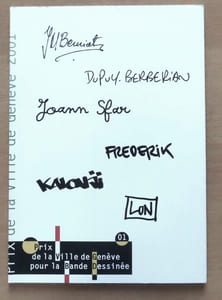 DUPUY. BERBERIAN
Joann Sfar
FREDERIK
KALONJI
LON
PRIX DE LA VILLE DE GENÈVE 2001
01
Prix
de la Ville de Genève
pour la Bande Dessinée